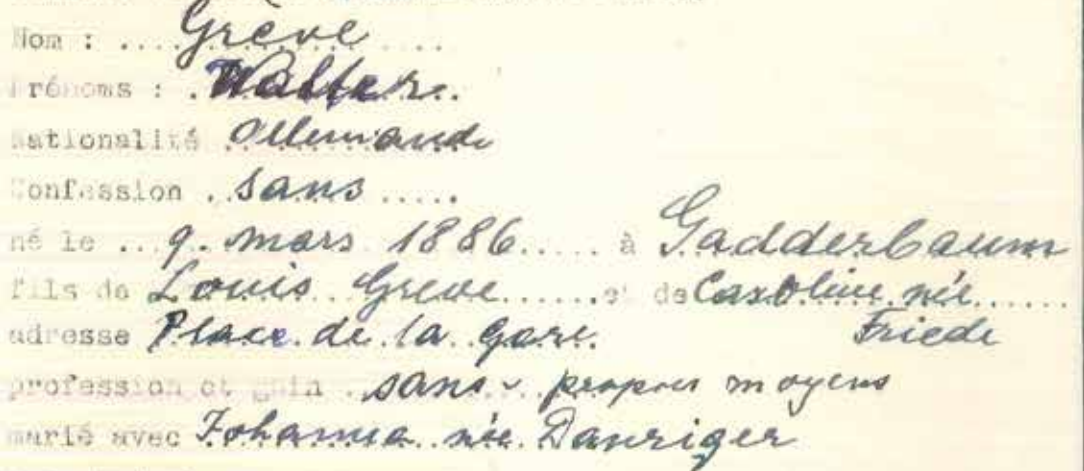 Nom : .... Grève
Prénoms : . Walter.
Nationalité Allemande
Confession . sans .....
né le ... 9. mars 1886..... à Gadderbaum
fils de Louis Greve ......et de Caroline née.....
adresse Place de la Gare. Friede
profession et gain . sans - propres moyens
marié avec Johanna née Danziger